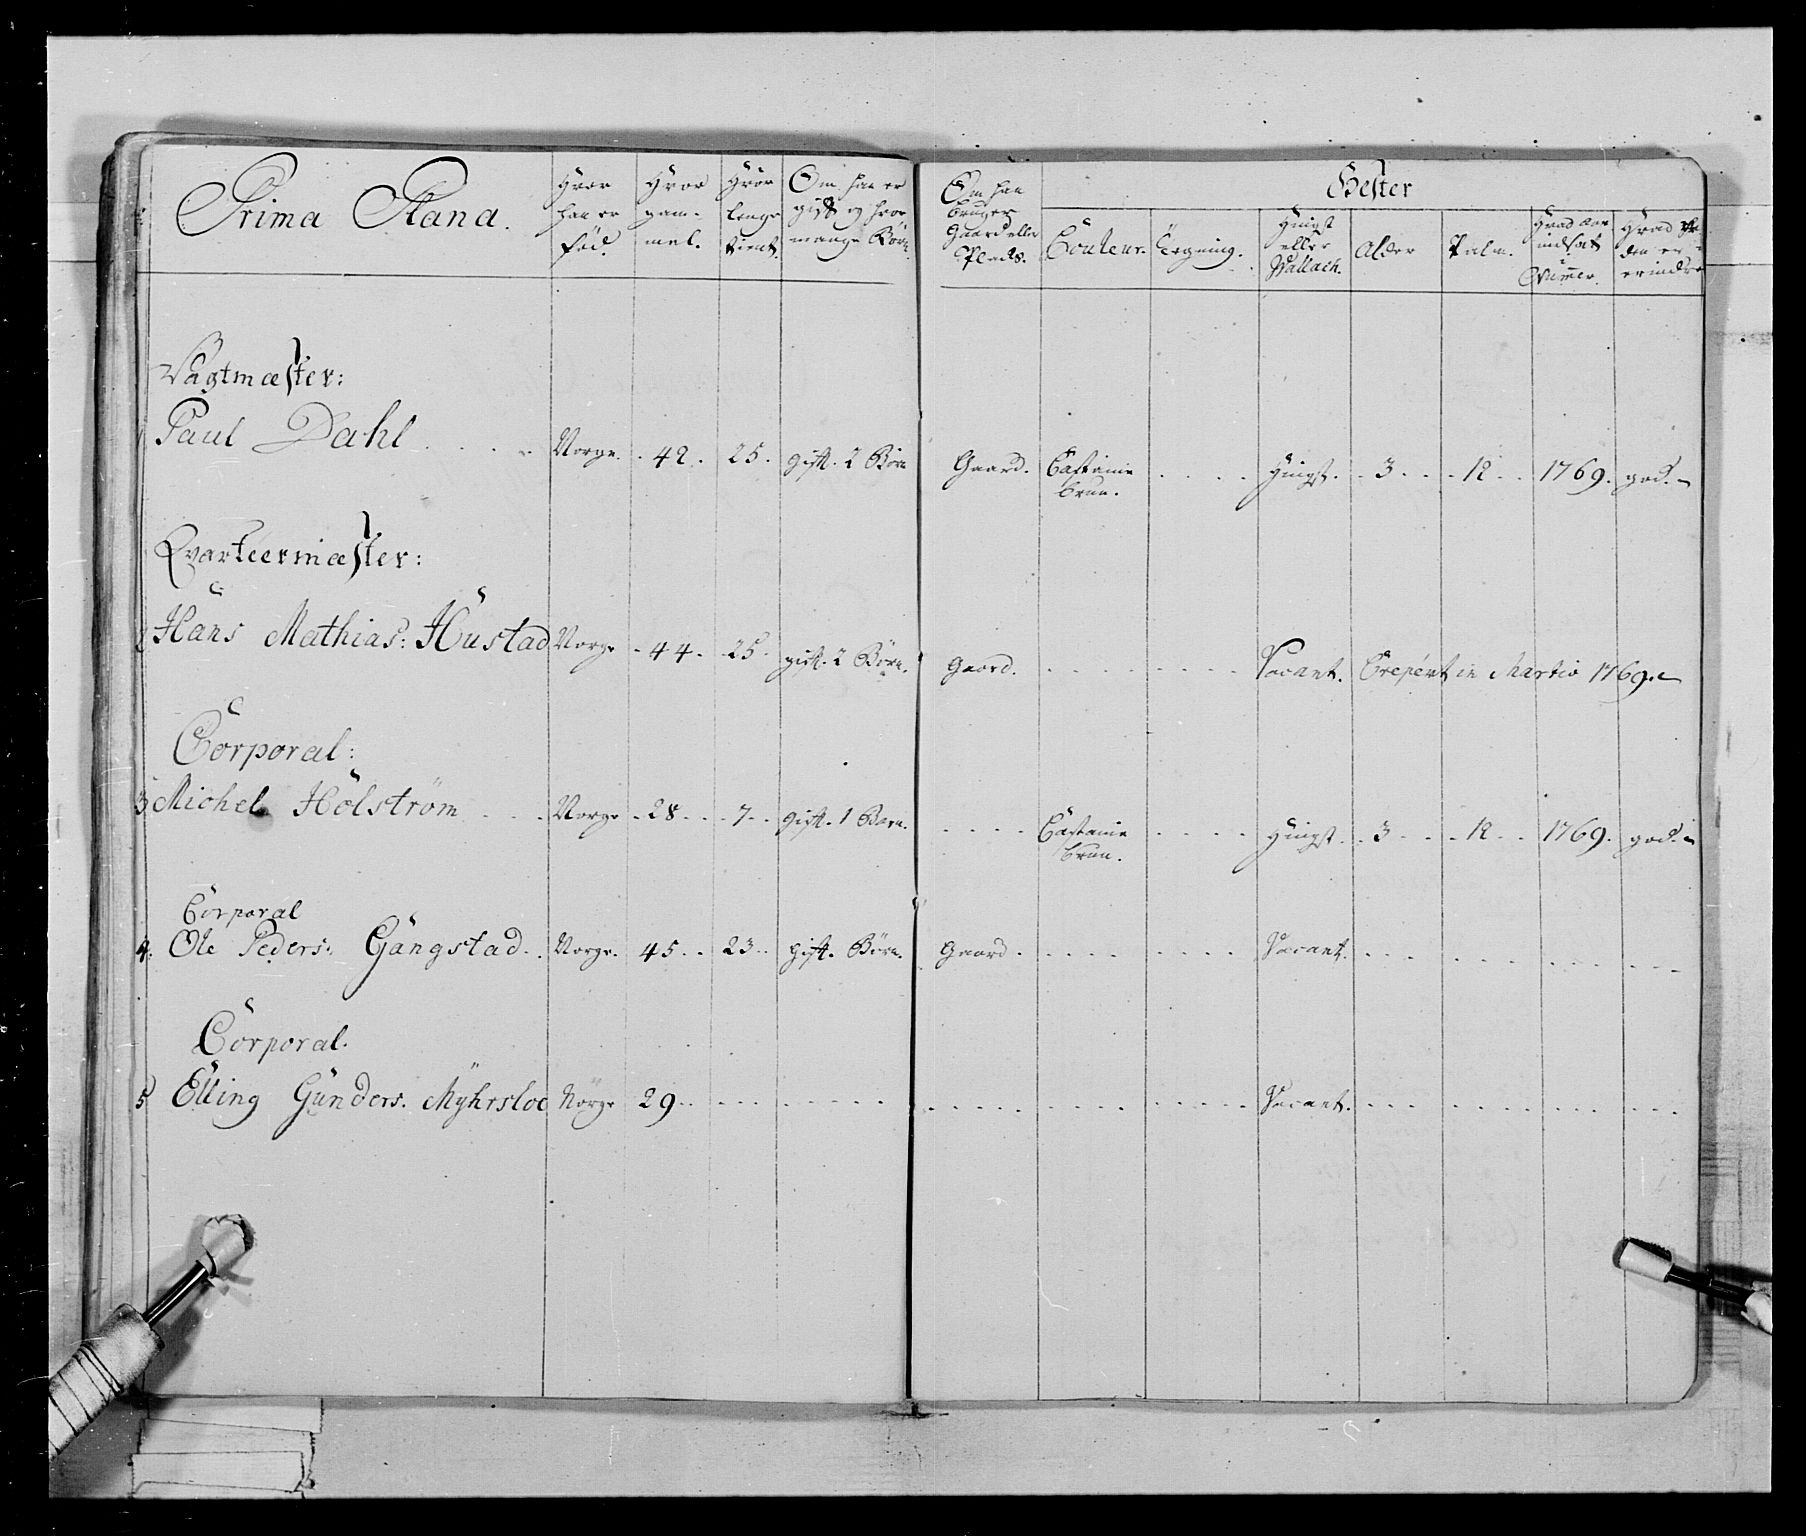 Prima Plana.
Hvor han er fød.
Hvor gam- mel.
Hvor længe tient.
Om han er gift og hvor mange Børn.
Om han bruger Gaard eller Plads.
Hester
Couleur.
Tegning.
Hingst eller Wallach.
Alder
Palm.
Hvad Aar indsat Numer.
Hvad
Vagtmæster:
Paul Dahl . . . . Norge. 42. 25. gift. 2 Børn Gaard. Castanie brun. . . . . Hingst. 3. . . 12. . 1769. god.
Qvarteermæster:
Hans Mathias: Hustad Norge 44. 25. gift. 2 Børn. Gaard. . . . . Vacant. Crepert in Martio 1769.
Corporal:
3 Michel Holstrøm . . . Norge 28. . 7. . gift. 1 Barn. . . . . Castanie brun. . . . . Hingst. 3. . . 12. . 1769. god.
Corporal
4. Ole Peders: Gangstad. . Norge. 45. . 23. . gift. Børn. Gaard. . . . . Vacant. . . .
Corporal.
5 Elling Gunders. Myhrsloe Norge 29. . . . . Vacant. . . .